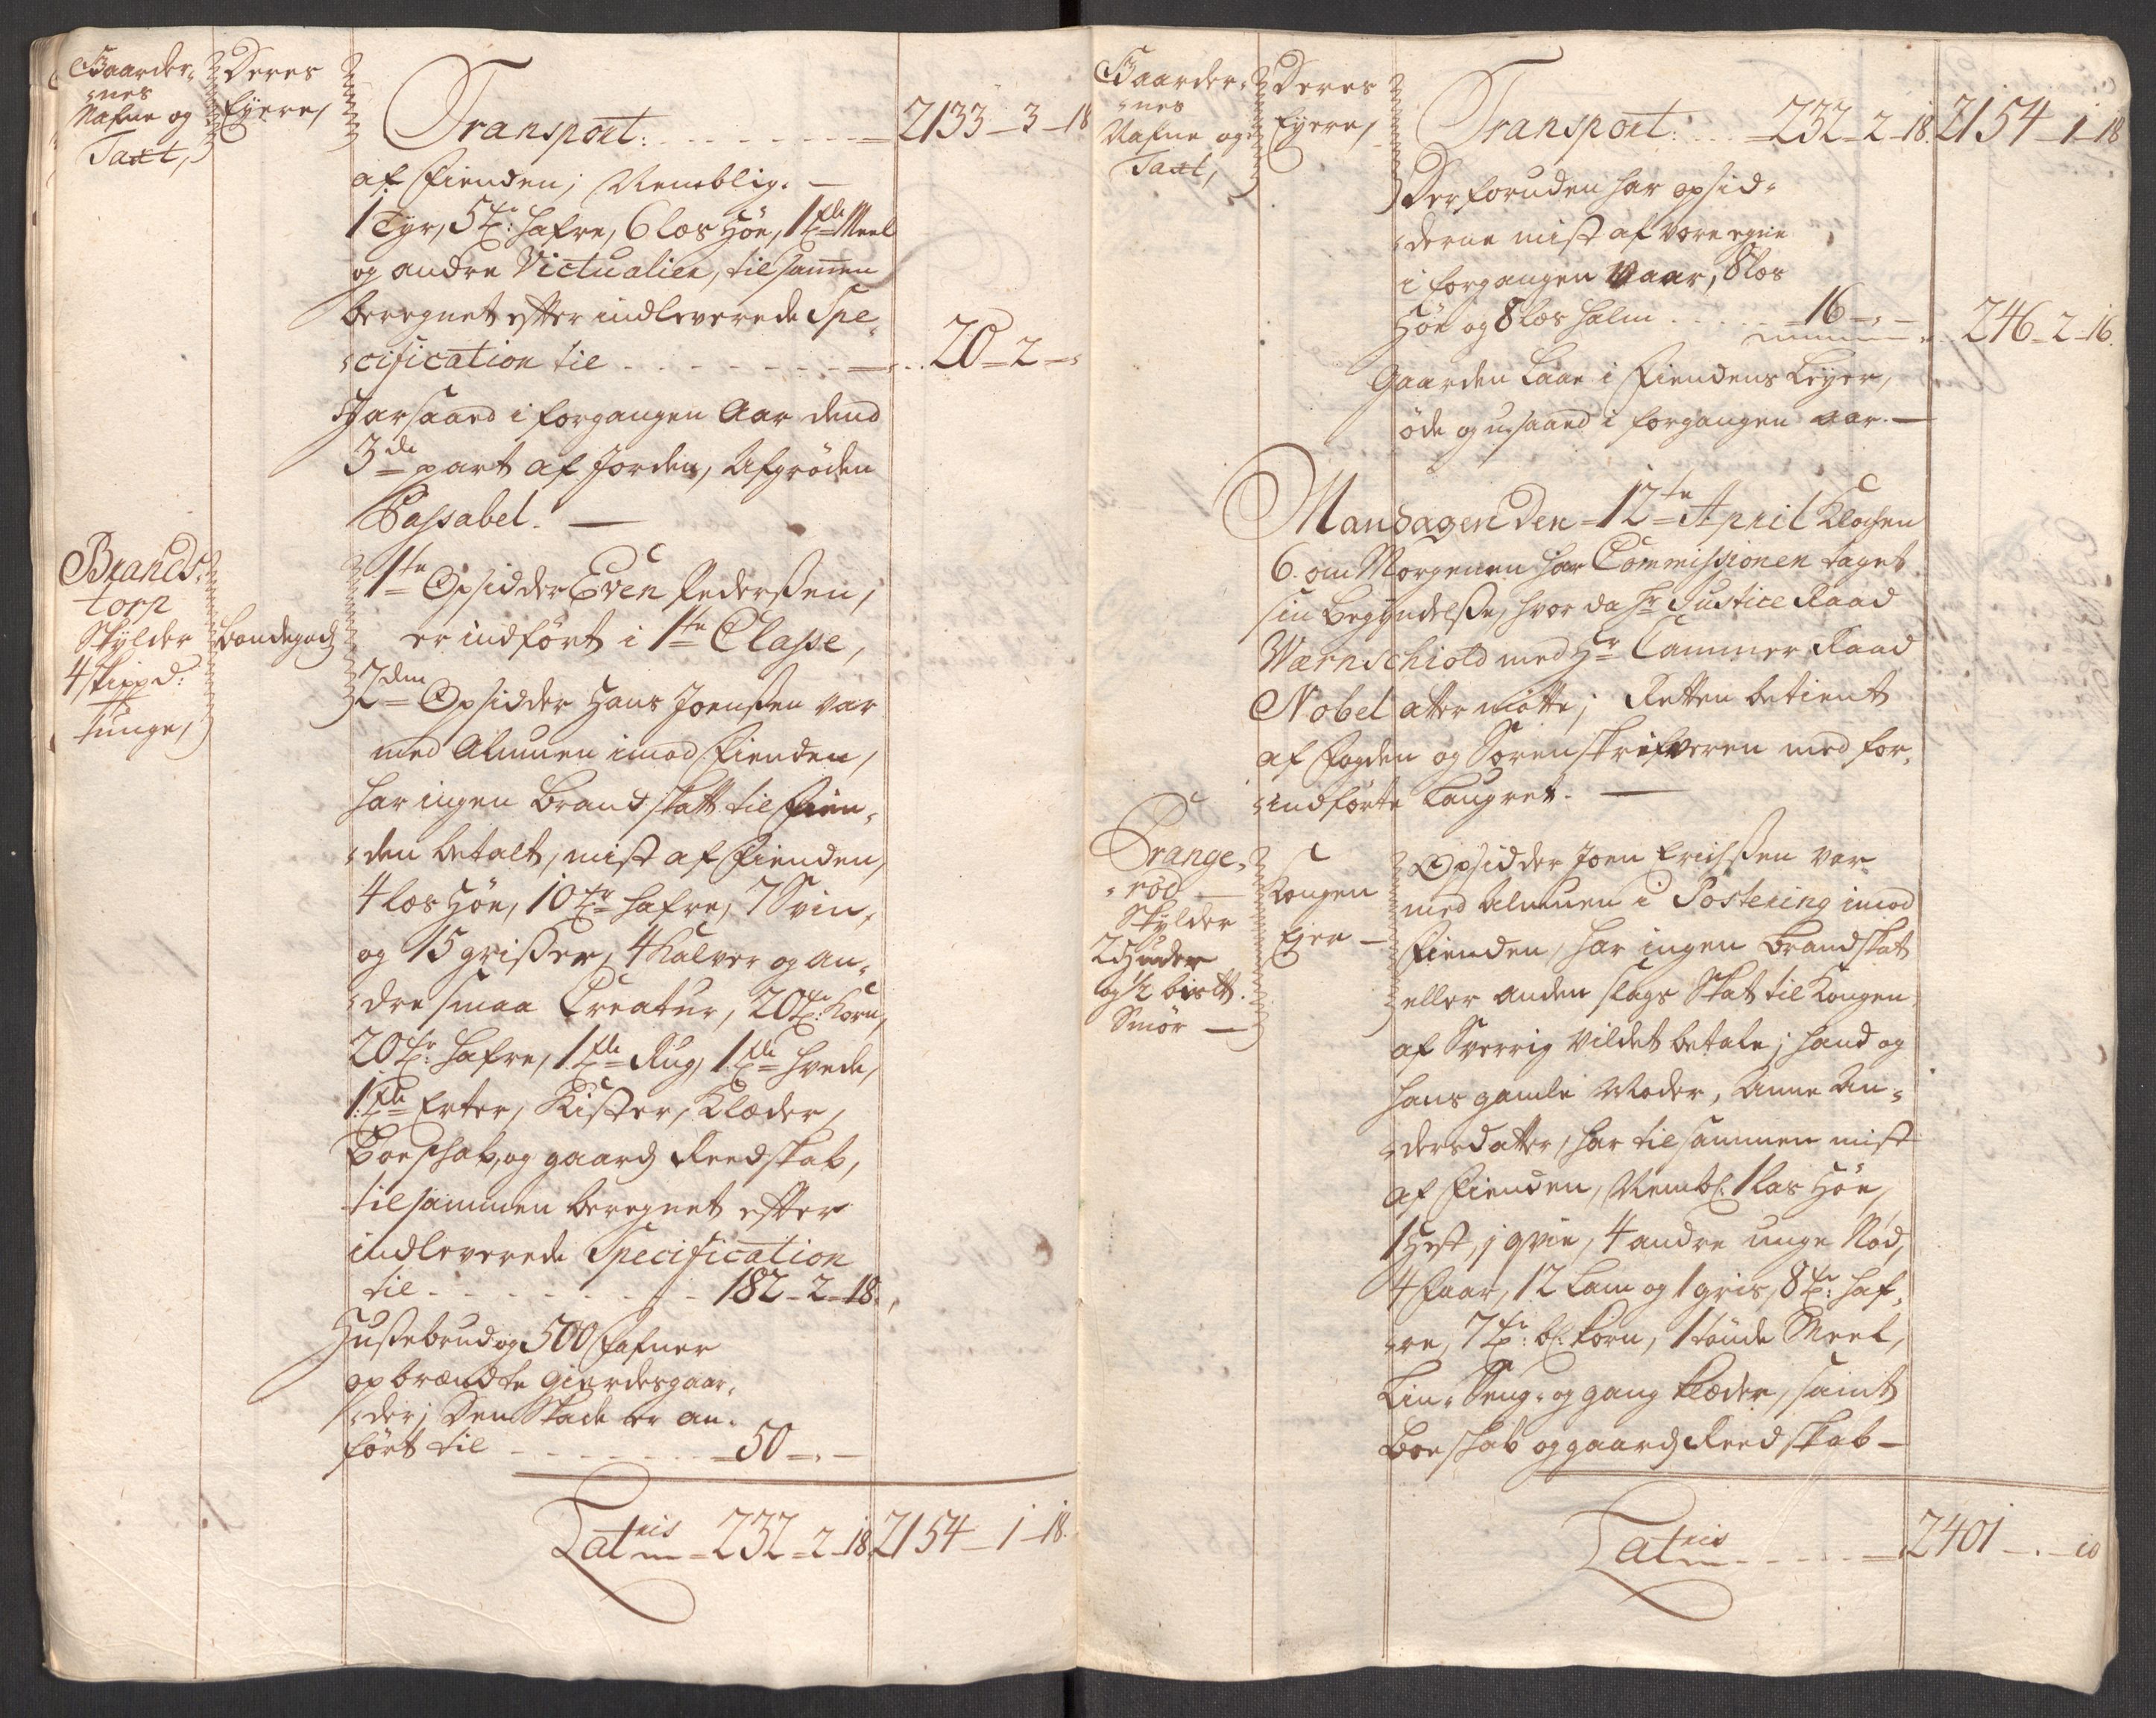 Gaarder-
-nes
Nafne og
Taxt,
Deres
Eyere,
Transport: . . . . . . . = 2133_3_18
af Fienden; Nemblig. —
1 Tyr, 5 Tr: Hafre, 6 læs Høe, 1 Tde Meel
og andre Victualier, tilsamen
beregnet efter indleverede Spe-
-cification til . . . . . . . . 20_2_"
Har saaed i forgangen Aar dend
3de part af Jorden, Afgrøden
Passabel. —
Brands-
torp
Skylder
4 skippd:
tunge,
bondegodz
1te Opsidder Even Pedersen,
er indført i 1te Classe,
2den Opsidder Hans Joensen var
med Almuen imod Fienden,
har ingen brandskatt til Fien-
-den betalt, mist af Fienden,
4 læs Høe, 10 Tr Hafre, 7 Svin,
og 15 griser, 4 Kalver og an-
-dre smaa Creatur, 20 Tr: Korn,
20 Tr: Hafre, 1 Tde Rug, 1 Tde Hvede,
1 Tde Erter, Kister, Klæder,
Boeschab, og gaardz Reedskab,
tilsammen beregnet efter
indleverede Specification
til . . . . . . . . 182_2_18.
Hussebrud og 500 Fafner
opbrændte gierdesgaar-
-der; Den Skade er an-
ført til . . . . . . . 50_"_
Lateris = 232_2_18. 2154_1_18.
Gaarder-
-nes
Nafne og
Taxt,
Deres
Eyere,
Transport: . . . 232_2_18. 2154_1_18
Der foruden har opsid-
-derne mist af vore egne
i forgangen Vaar, 8 læs
Høe og 8 læs halm . . . . 16_"_ 246_2_16.
Gaarden laae i Fiendens Leyer,
øde og usaaed i forgangen aar. —
Mandagen den 12te April Klochen
6. om Morgenen har Commissionen taget
sin begyndelse, hvor da Hr Justice Raad
Wærnschiold med Hr Cammer Raad
Nobel atter møtte; Retten betient
af Fogden og Sorenskrifveren med for-
-indførte Laugret. —
Prange-
-rød —
Skylder
2 Huder
og 1/2 bistt.
Smør —
Kongen
Ejer —
Opsidder Joen Erichssen var
med Almuen i Postering imod
Fienden, har ingen brandskat
eller anden slags Skat til Kongen
af Sverrig vildet betale; hand og
hans gamle Moder, Anne An-
-dersdatter, har tilsammen mist
af Fienden, Nembl. 1 læs Høe,
1 Hest, 1 qvie, 4 andre unge Nød,
4 Faar, 12 Lam og 1 gris, 8 Tr: Haf-
-re, 7 Tr: bl. korn, 1 tønde Meel,
Lin- Seng- og gang klæder, samt
Boeschab og gaardz Reedskab —
Lateris . . . . . 2401_._10